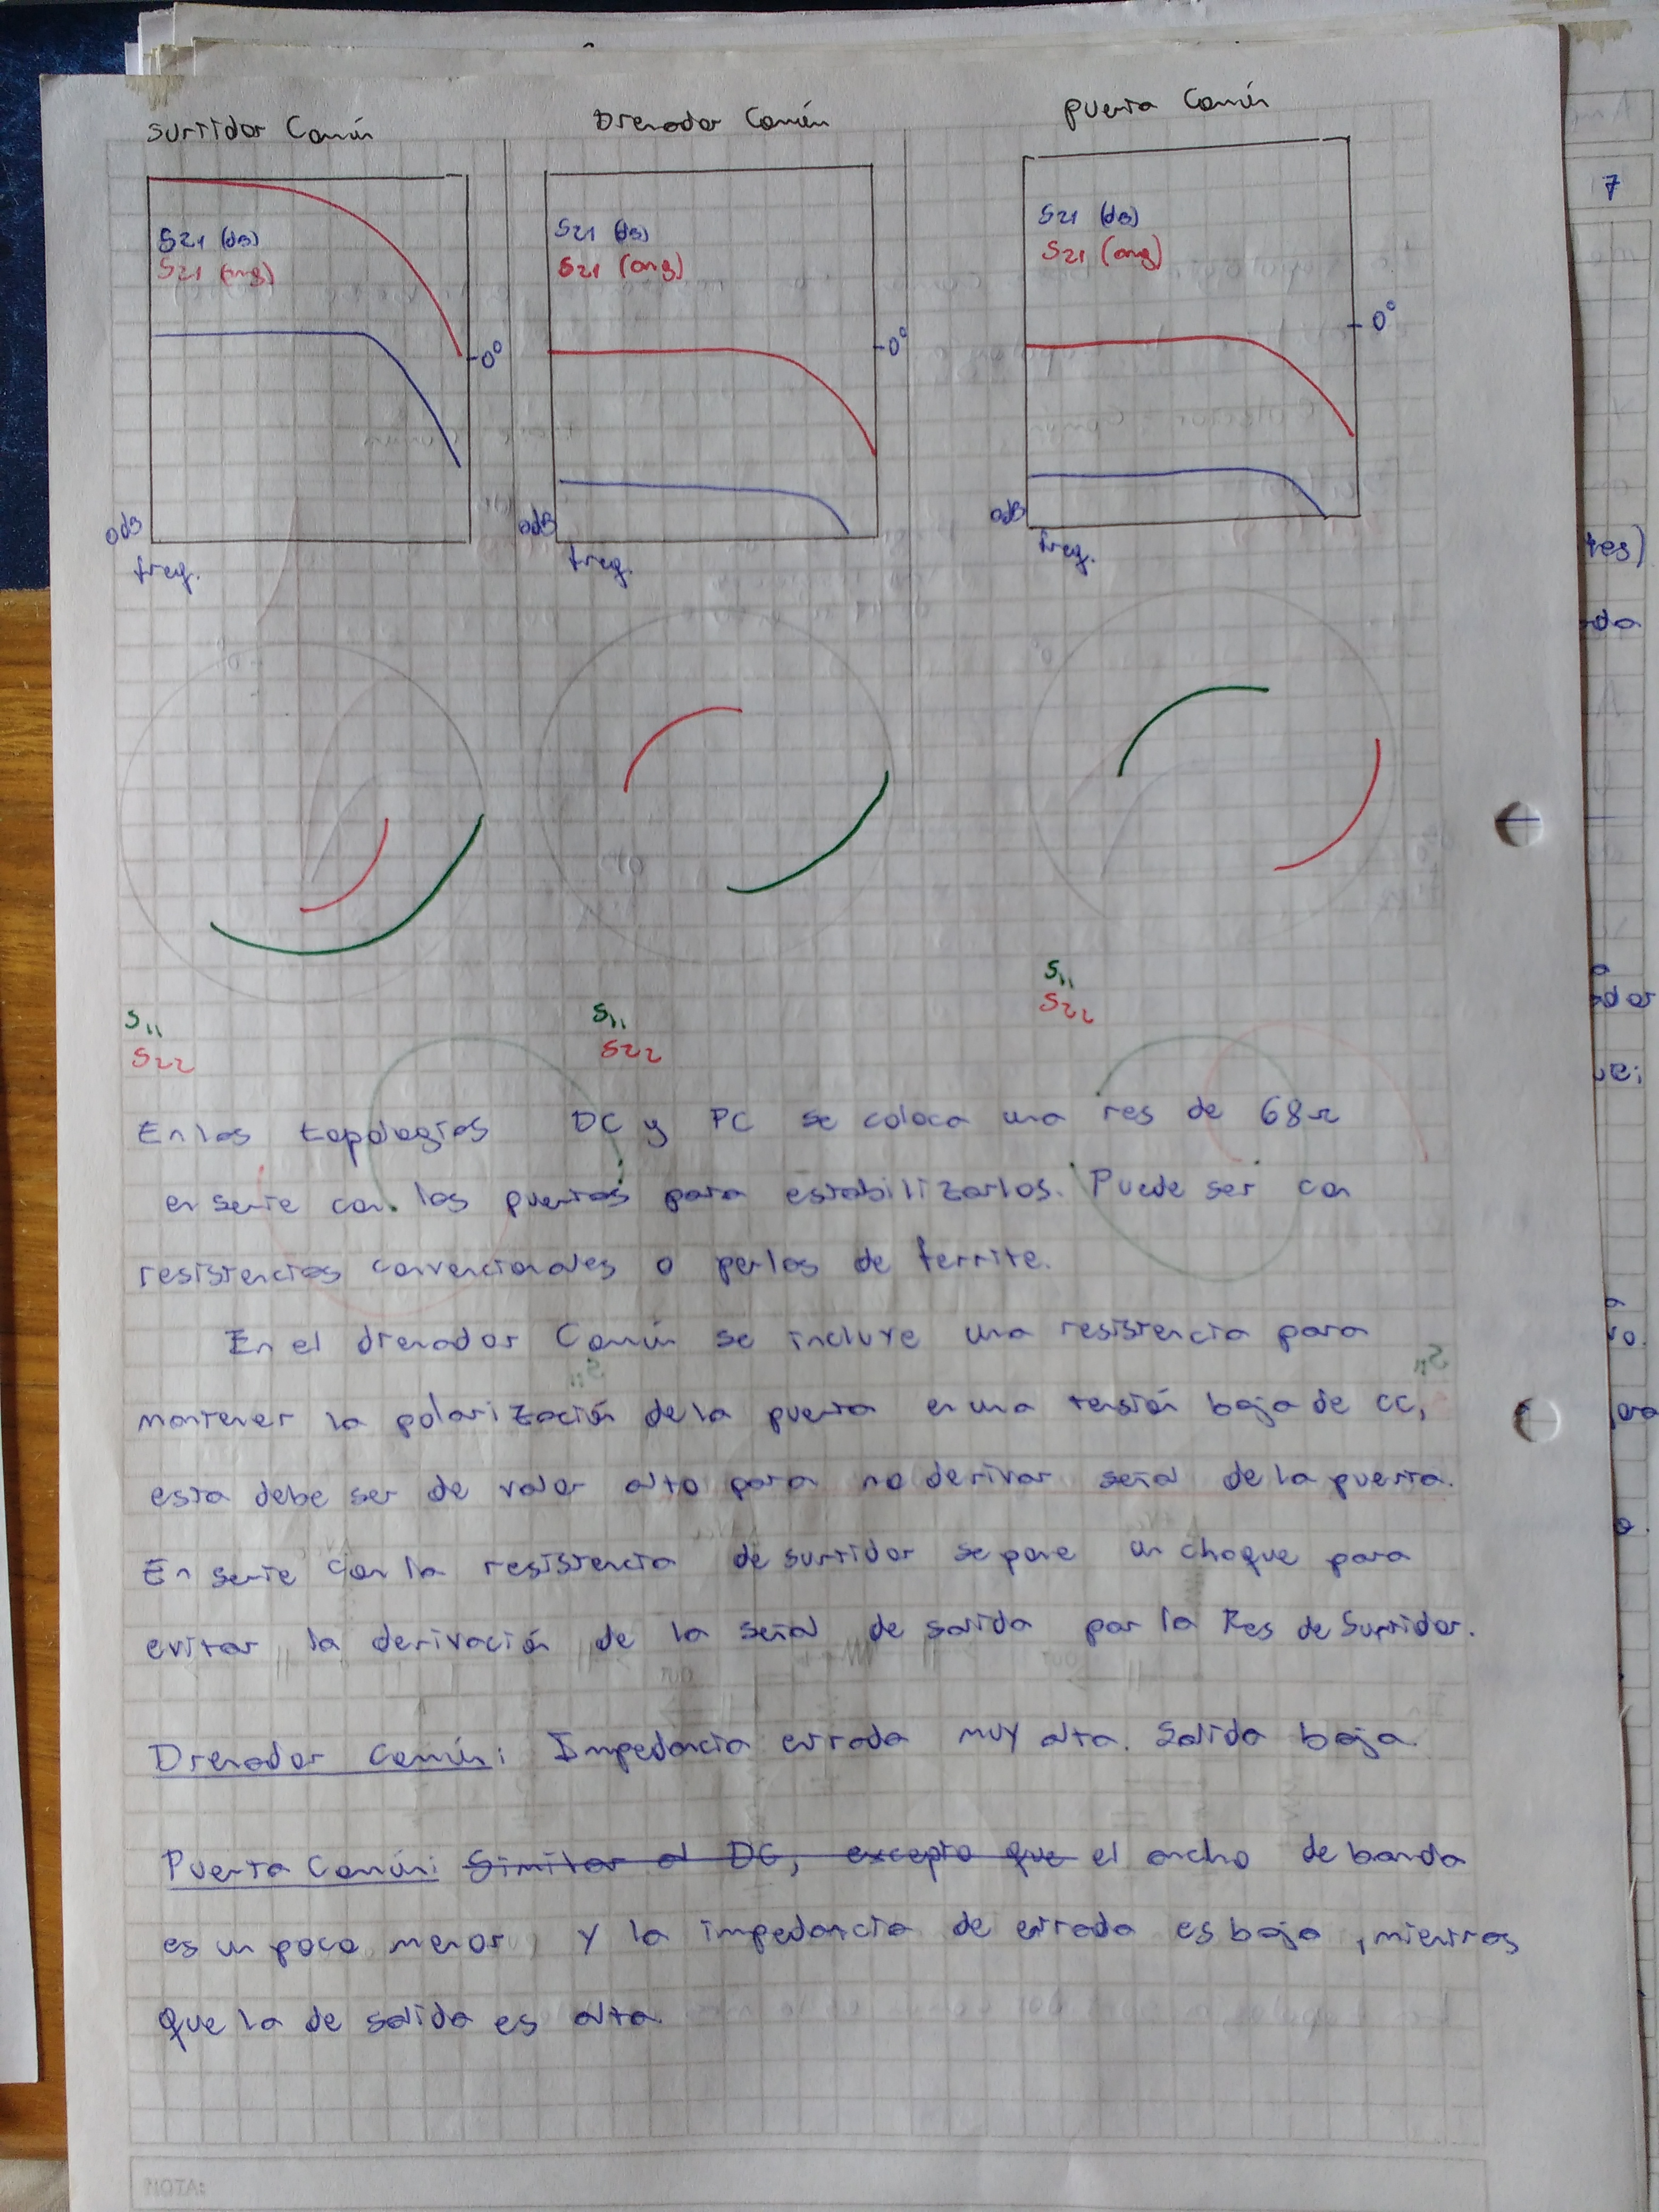 Surtidor Común
Drenador Común
puerta Común
S21 (dB)
S21 (ang)
0°
0dB
freq.
S21 (dB)
S21 (ang)
0°
0dB
freq.
S21 (dB)
S21 (ang)
0°
0dB
freq.
S11
S22
S11
S22
S11
S22
En las topologías DC y PC se coloca una res de 68Ω
en serie con las puertas para estabilizarlos. Puede ser con
resistencias convencionales o perlas de ferrite.
En el drenador Común se incluye una resistencia para
mantener la polarización de la puerta en una tensión baja de CC,
esta debe ser de valor alto para no derivar señal de la puerta.
En serie con la resistencia de surtidor se pone un choque para
evitar la derivación de la señal de salida por la Res de Surtidor.
Drenador Común: Impedancia entrada muy alta. Salida baja.
Puerta Común: Similar al DC, excepto que el ancho de banda
es un poco menor, y la impedancia de entrada es baja, mientras
que la de salida es alta.
NOTA:
7
tes)